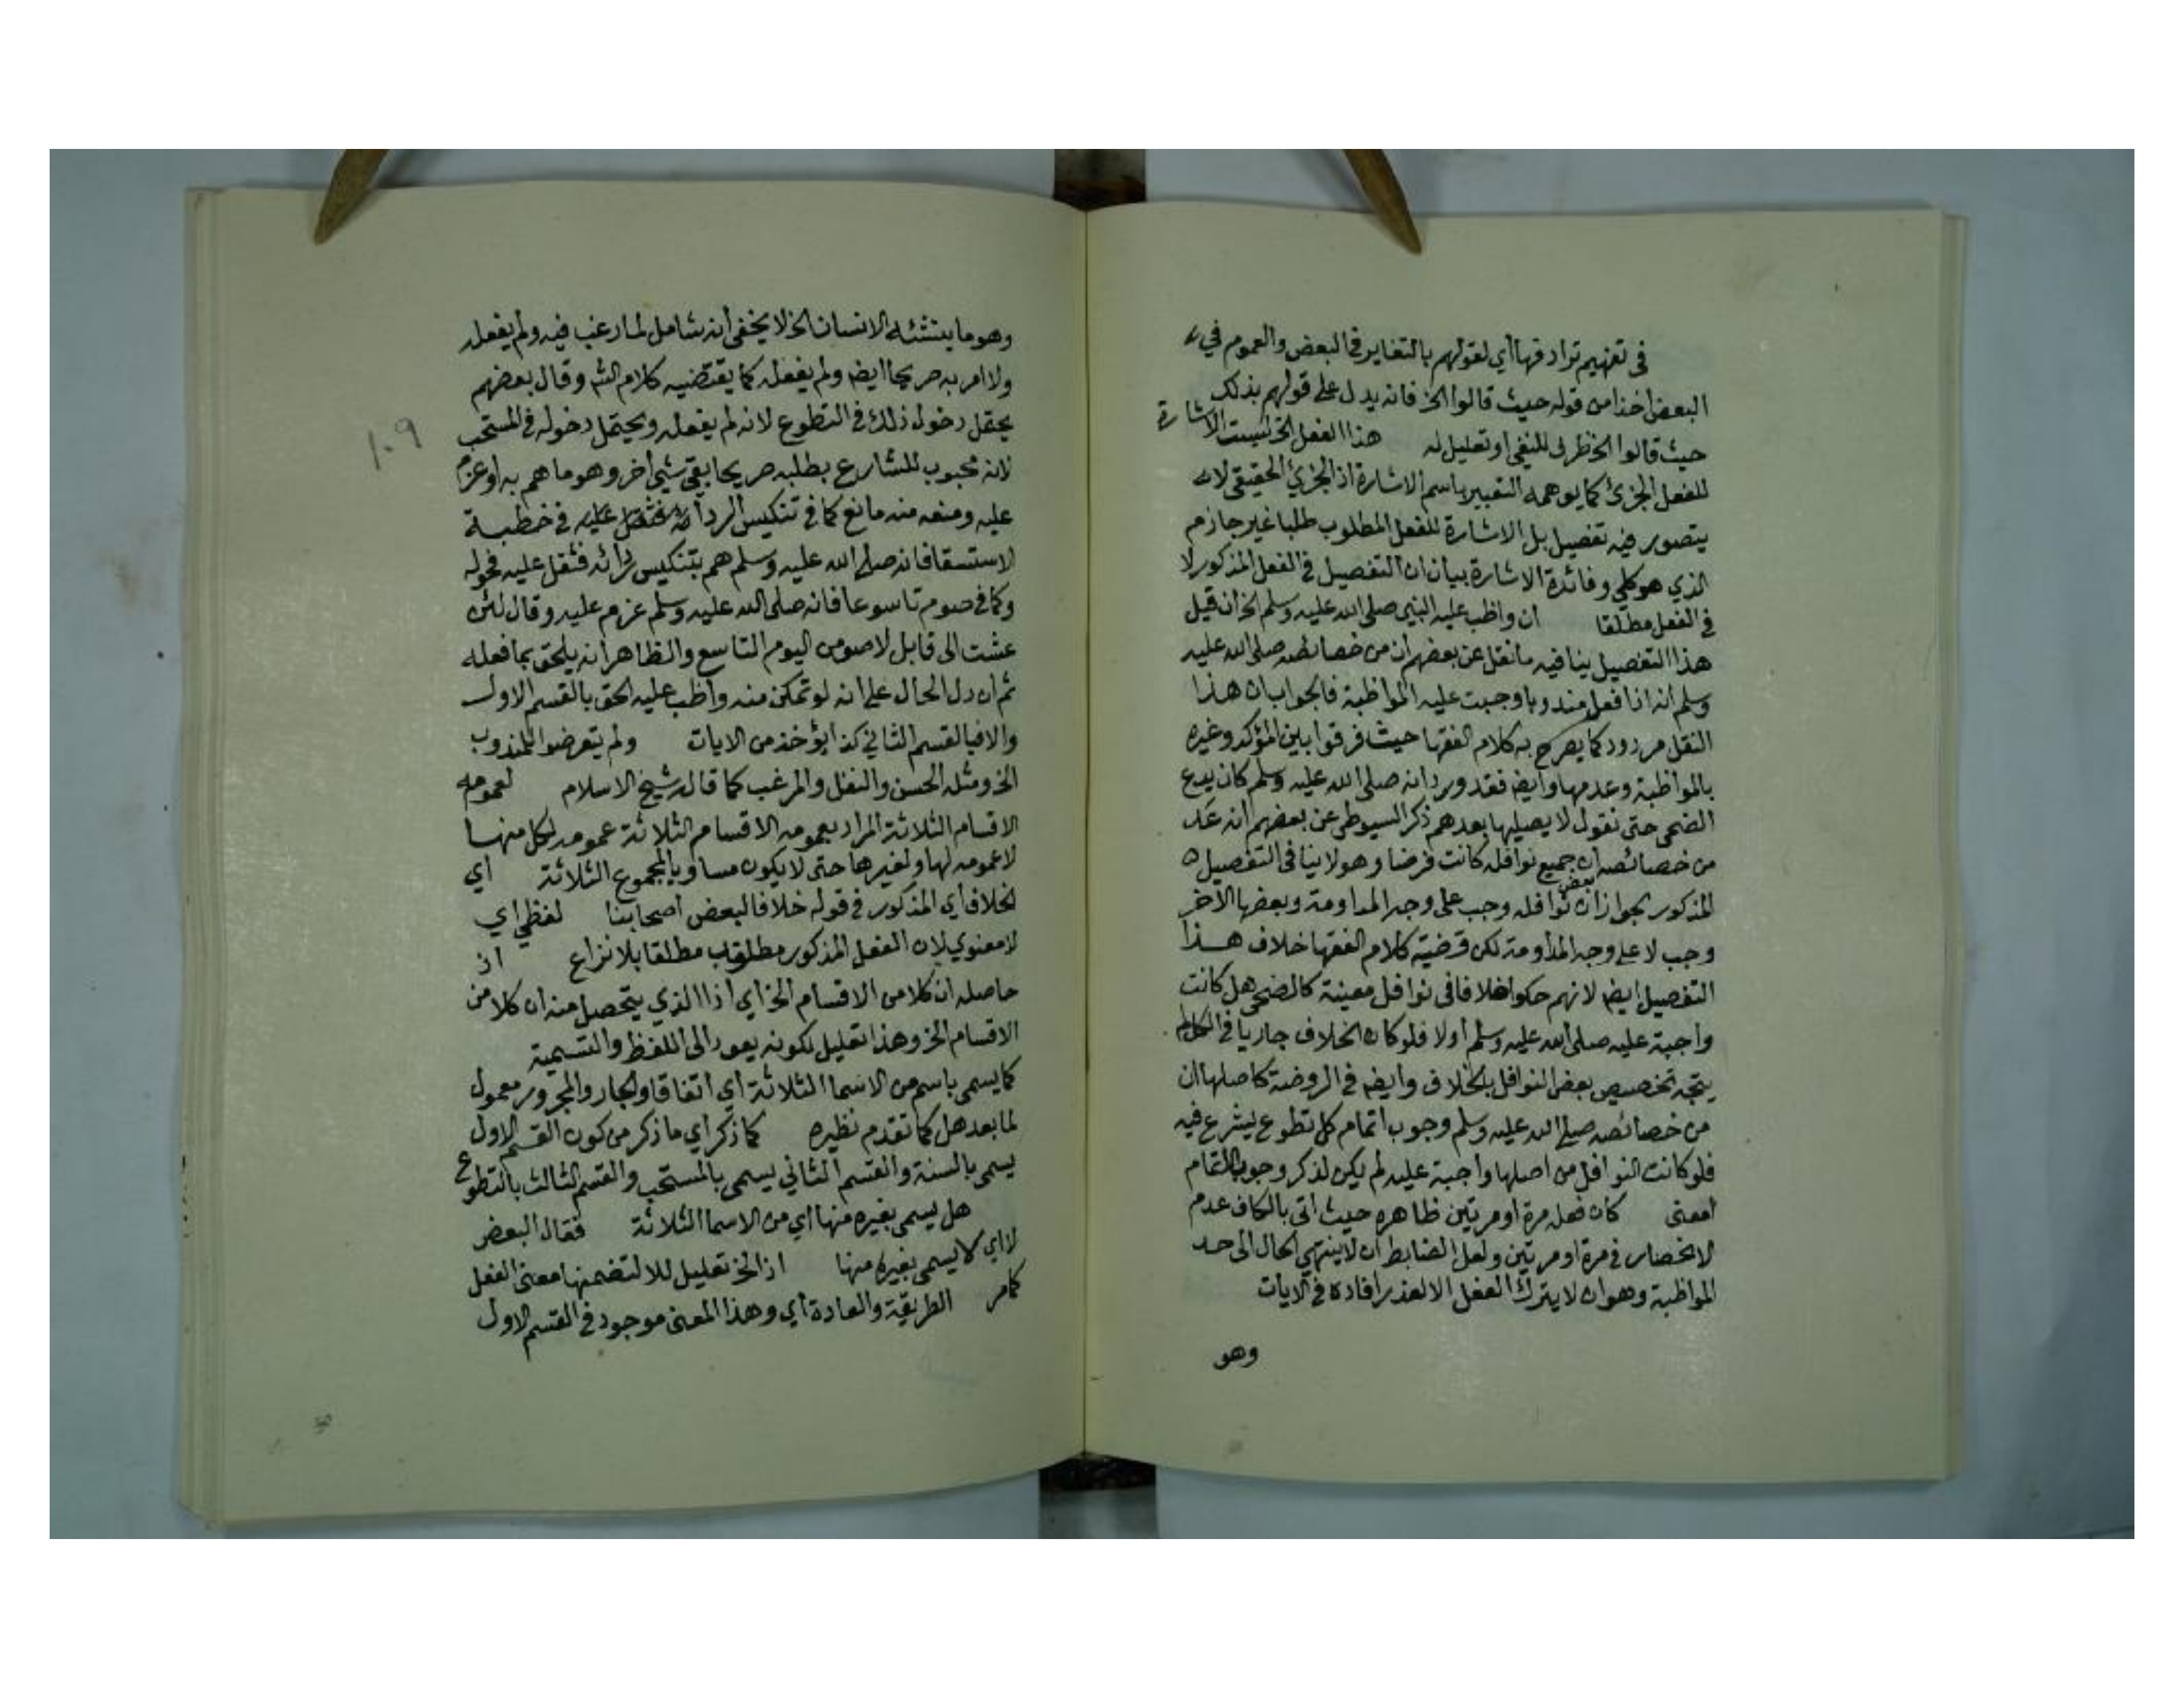 في تفهيم ترادفها أي لقولهم بالتغاير في البعض والعموم في
البعض اخذا من قوله حيث قالوا الخ فانه يدل على قولهم بذلك
حيث قالوا الخ ظرف للنفي او تعليل له هذا الفعل الخ ليست الاشارة
للفعل الجزئ كما يوهمه التعبير باسم الاشارة اذ الجزئ الحقيقي لا
يتصور فيه تفصيل بل الاشارة للفعل المطلوب طلبا غير جازم
الذي هو كلي وفائدة الاشارة بيان ان التفصيل في الفعل المذكور لا
في الفعل مطلقا ان واظب عليه النبي صلى الله عليه وسلم الخ ان قيل
هذا التفصيل ينافيه ما نقل عن بعضهم ان من خصائصه صلى الله عليه
وسلم انه اذا فعل مندوبا وجبت عليه المواظبة فالجواب ان هذا
النقل مردود كما يصرح به كلام الفقها حيث فرقوا بين المؤكد وغيره
بالمواظبة وعدمها وايضا فقد ورد انه صلى الله عليه وسلم كان يدع
الضحى حتى نقول لا يصليها بعدهم ذكر السيوطي عن بعضهم انه عد
من خصائصه ان جميع نوافله كانت فرضا وهو لا ينافي التفصيل
المذكور بجواز ان بعض نوافله وجب على وجه المداومة وبعضها الآخر
وجب لا على وجه المداومة لكن قضية كلام الفقها خلاف هذا
التفصيل ايضا لانهم حكوا خلافا في نوافل معينة كالضحى هل كانت
واجبة عليه صلى الله عليه وسلم أولا فلو كان الخلاف جاريا في الكل لم
يتجه تخصيص بعض النوافل بالخلاف وايضا في الروضة كاصلها ان
من خصائصه صلى الله عليه وسلم وجوب اتمام كل تطوع يشرع فيه
فلو كانت النوافل من اصلها واجبة عليه لم يكن لذكر وجوب التمام
معنى كان فعله مرة او مرتين ظاهره حيث اتى بالكاف عدم
الانحصار في مرة او مرتين ولعل الضابط ان لا ينتهي الحال الى حد
المواظبة وهو ان لا يترك الفعل الا لعذر افاده في الايات
وهو
وهو ما ينشئه الانسان الخ لا يخفى أنه شامل لما رغب فيه ولم يفعله
ولا امر به صريحا ايضا ولم يفعله كما يقتضيه كلام الش وقال بعضهم
يحتمل دخول ذلك في التطوع لانه لم يفعله ويحتمل دخوله في المستحب
١٠٩
لانه محبوب للشارع بطلبه صريحا بقي شي اخر وهو ما هم به او عزم
عليه ومنعه منه مانع كما في تنكيس الردا فثقل عليه في خطبة
الاستسقا فانه صلى الله عليه وسلم هم بتنكيس ردائه فثقل عليه فحوله
وكما في صوم تاسوعا فانه صلى الله عليه وسلم عزم عليه وقال لئن
عشت الى قابل لاصومن اليوم التاسع والظاهر انه يلحق بما فعله
ثم ان دل الحال على انه لو تمكن منه واظب عليه الحق بالقسم الاول
والا فبالقسم الثاني كذا يؤخذ من الايات ولم يتعرضوا للمندوب
الخ ومثله الحسن والنفل والمرغب كما قاله شيخ الاسلام لعمومه
الاقسام الثلاثة المراد بعمومه الاقسام الثلاثة عمومه لكل منها
لا عمومه لها ولغيرها حتى لا يكون مساويا لمجموع الثلاثة اي
الخلاف أي المذكور في قوله خلافا لبعض أصحابنا لفظي اي
لا معنوي لان الفعل المذكور مطلوب مطلقا بلا نزاع اذ
حاصله ان كلا من الاقسام الخ اي اذ الذي يتحصل منه ان كلا من
الاقسام الخ وهذا تعليل لكونه يعود الى اللفظ والتسمية
كما يسمى باسم من الاسما الثلاثة أي اتفاقا والجار والمجرور معمول
لما بعد هل كما تقدم نظيره كما ذكر أي ما ذكر من كون القسم الاول
يسمى بالسنة والقسم الثاني يسمى بالمستحب والقسم الثالث بالتطوع
هل يسمى بغيره منها اي من الاسما الثلاثة فقال البعض
لا اي لا يسمى بغيره منها اذ الخ تعليل للا لتضمنها معنى الفعل
كما مر الطريقة والعادة أي وهذا المعنى موجود في القسم الاول